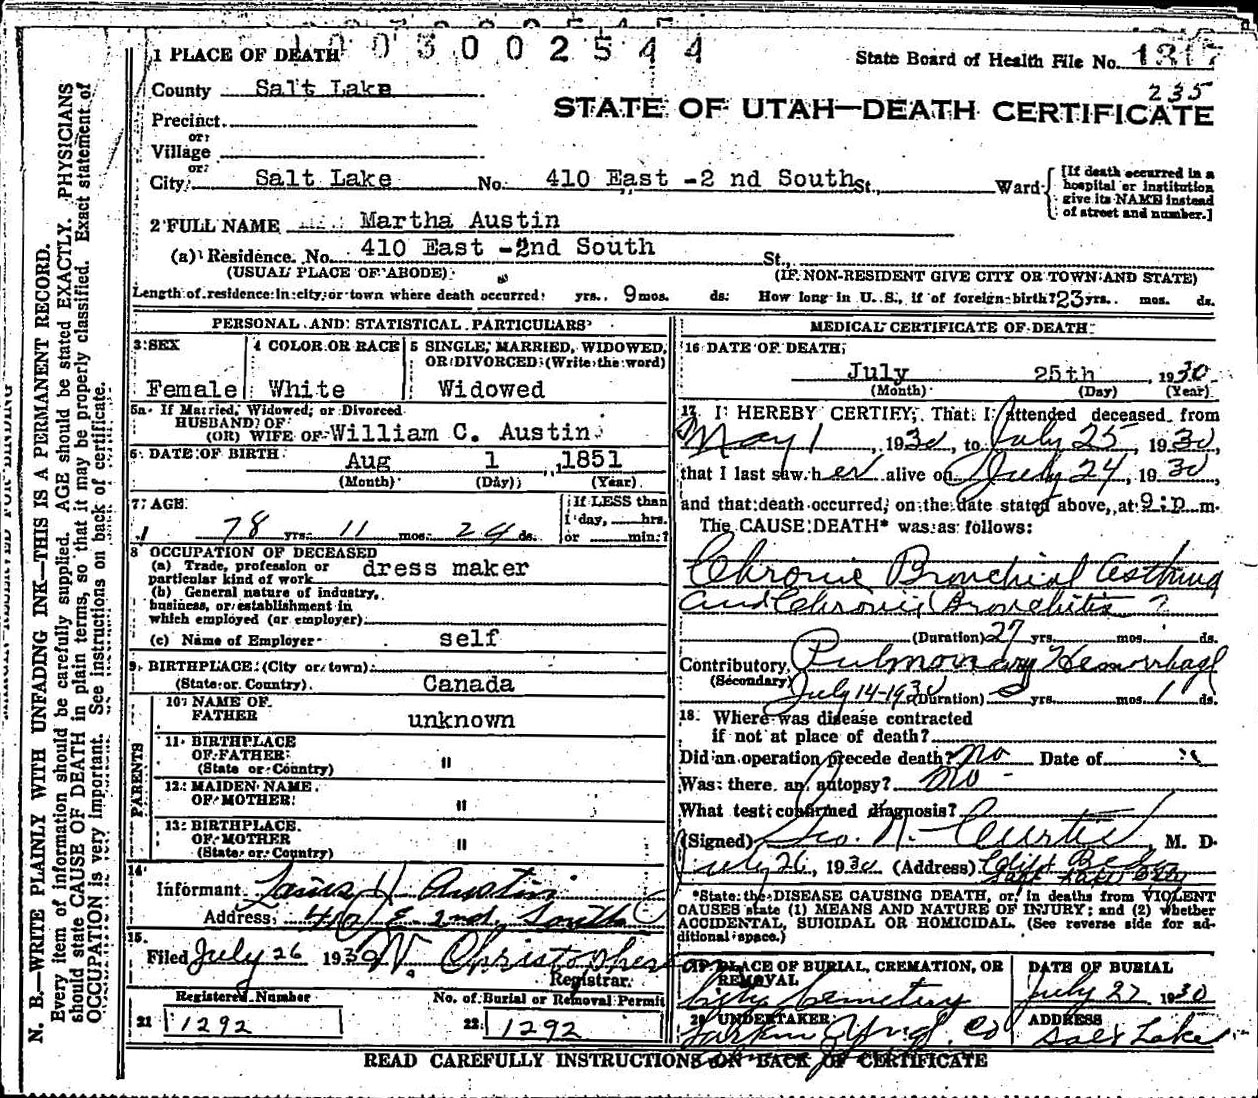 1003002544
1 PLACE OF DEATH
State Board of Health File No. 1317
235
County Salt Lake
STATE OF UTAH—DEATH CERTIFICATE
Precinct
or
Village
or
City Salt Lake No. 410 East -2 nd South St., Ward
[If death occurred in a hospital or institution give its NAME instead of street and number.]
2 FULL NAME Martha Austin
(a) Residence. No. 410 East -2nd South St.,
(USUAL PLACE OF ABODE) (IF NON-RESIDENT GIVE CITY OR TOWN AND STATE)
Length of residence in city or town where death occurred yrs. 9 mos. ds. How long in U. S., if of foreign birth? 23 yrs. mos. ds.
PERSONAL AND STATISTICAL PARTICULARS
3 SEX
Female
4 COLOR OR RACE
White
5 SINGLE, MARRIED, WIDOWED,
OR DIVORCED (Write the word)
Widowed
5a If Married, Widowed, or Divorced
HUSBAND OF
(OR) WIFE OF William C. Austin
6 DATE OF BIRTH Aug 1 1851
(Month) (Day) (Year)
7 AGE
78 yrs. 11 mos. 24 ds.
If LESS than
1 day, hrs.
or min.?
8 OCCUPATION OF DECEASED
(a) Trade, profession or
particular kind of work dress maker
(b) General nature of industry,
business, or establishment in
which employed (or employer)
(c) Name of Employer self
9 BIRTHPLACE (City or town)
(State or Country) Canada
PARENTS
10 NAME OF
FATHER unknown
11 BIRTHPLACE
OF FATHER "
(State or Country)
12 MAIDEN NAME
OF MOTHER "
13 BIRTHPLACE
OF MOTHER "
(State or Country)
14
Informant H Austin
Address 410 E 2nd South
15
Filed July 26 1930 W Christopherson
Registrar.
Registered Number
21 1292
No. of Burial or Removal Permit
22 1292
MEDICAL CERTIFICATE OF DEATH
16 DATE OF DEATH
July 25th, 1930
(Month) (Day) (Year)
17 I HEREBY CERTIFY, That I attended deceased from
May 1, 1930, to July 25, 1930,
that I last saw her alive on July 24, 1930,
and that death occurred, on the date stated above, at 9:p.m.
The CAUSE DEATH* was as follows:
Chronic Bronchial Asthma
and Chronic Bronchitis ?
(Duration) 27 yrs. mos. ds.
Contributory Pulmonary Hemorrhage
(Secondary) July 14-1930 (Duration) yrs. mos. 1 ds.
18 Where was disease contracted
if not at place of death?
Did an operation precede death? No Date of
Was there an autopsy? No -
What test confirmed diagnosis?
(Signed) Geo. N. Curtis, M. D.
July 26, 1930 (Address)
*State the DISEASE CAUSING DEATH, or, in deaths from VIOLENT
CAUSES state (1) MEANS AND NATURE OF INJURY; and (2) whether
ACCIDENTAL, SUICIDAL OR HOMICIDAL. (See reverse side for ad-
ditional space.)
19 PLACE OF BURIAL, CREMATION, OR
REMOVAL
City Cemetery
DATE OF BURIAL
July 27 1930
20 UNDERTAKER
Larkin Co
ADDRESS
Salt Lake
READ CAREFULLY INSTRUCTIONS ON BACK OF CERTIFICATE
N. B.—WRITE PLAINLY WITH UNFADING INK—THIS IS A PERMANENT RECORD.
Every item of information should be carefully supplied. AGE should be stated EXACTLY. PHYSICIANS
should state CAUSE OF DEATH in plain terms, so that it may be properly classified. Exact statement of
OCCUPATION is very important. See instructions on back of certificate.